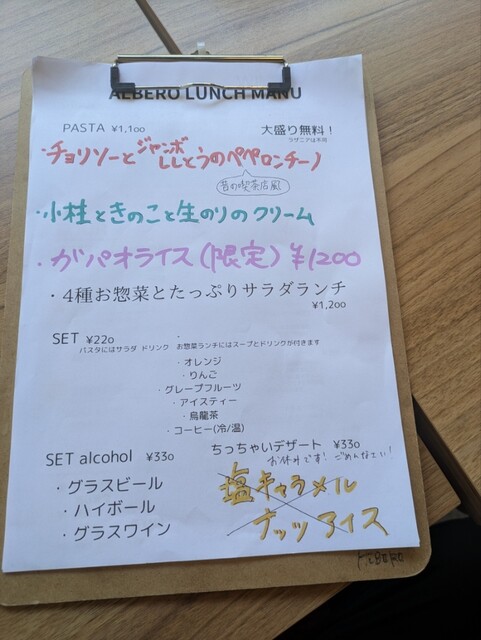 ALBERO LUNCH MANU
PASTA ¥1,100
大盛り無料！
ラザニアは不可
・チョリソーとジャンボししとうのペペロンチーノ
昔の喫茶店風
・小柱ときのこと生のりのクリーム
・ガパオライス(限定) ¥1200
・4種お惣菜とたっぷりサラダランチ
¥1,200
SET ¥220
パスタにはサラダ ドリンク お惣菜ランチにはスープとドリンクが付きます
・オレンジ
・りんご
・グレープフルーツ
・アイスティー
・烏龍茶
・コーヒー(冷/温)
SET alcohol ¥330
・グラスビール
・ハイボール
・グラスワイン
ちっちゃいデザート ¥330
お休みです！ごめんなさい！
塩キャラメル
ナッツアイス
ALBERO